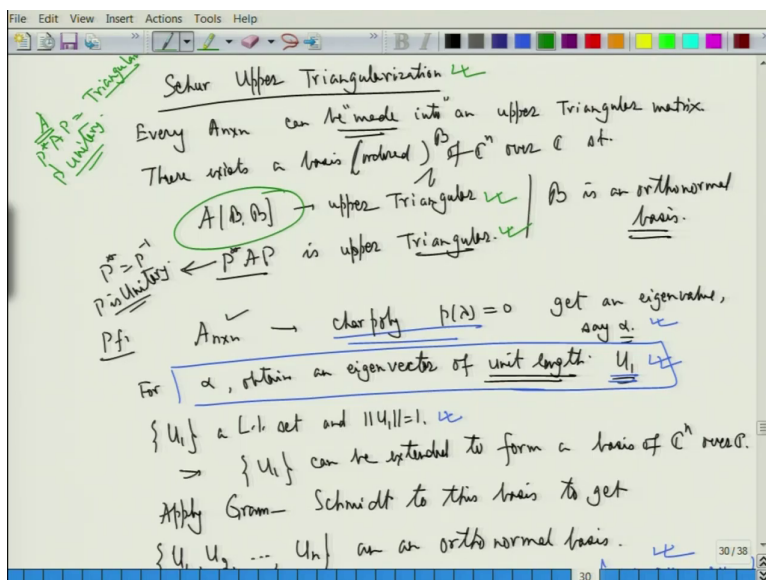 File Edit View Insert Actions Tools Help
Schur Upper Triangularization
A
P*AP = Triangular
P unitary
Every Anxn can be "made into" an upper Triangular matrix.
There exists a basis (ordered) B of ℂⁿ over ℂ st.
A[B,B] → upper Triangular | B is an orthonormal basis.
P* = P⁻¹
P is Unitary ← P*AP is upper Triangular.
Pf: Anxn → char poly p(λ) = 0 get an eigenvalue, say α.
For α, obtain an eigenvector of unit length. U₁
{U₁} a L.I. set and ||U₁||=1.
⇒ {U₁} can be extended to form a basis of ℂⁿ over ℂ.
Apply Gram-Schmidt to this basis to get
{U₁, U₂, ..., Un} an an orthonormal basis.
30/38
30